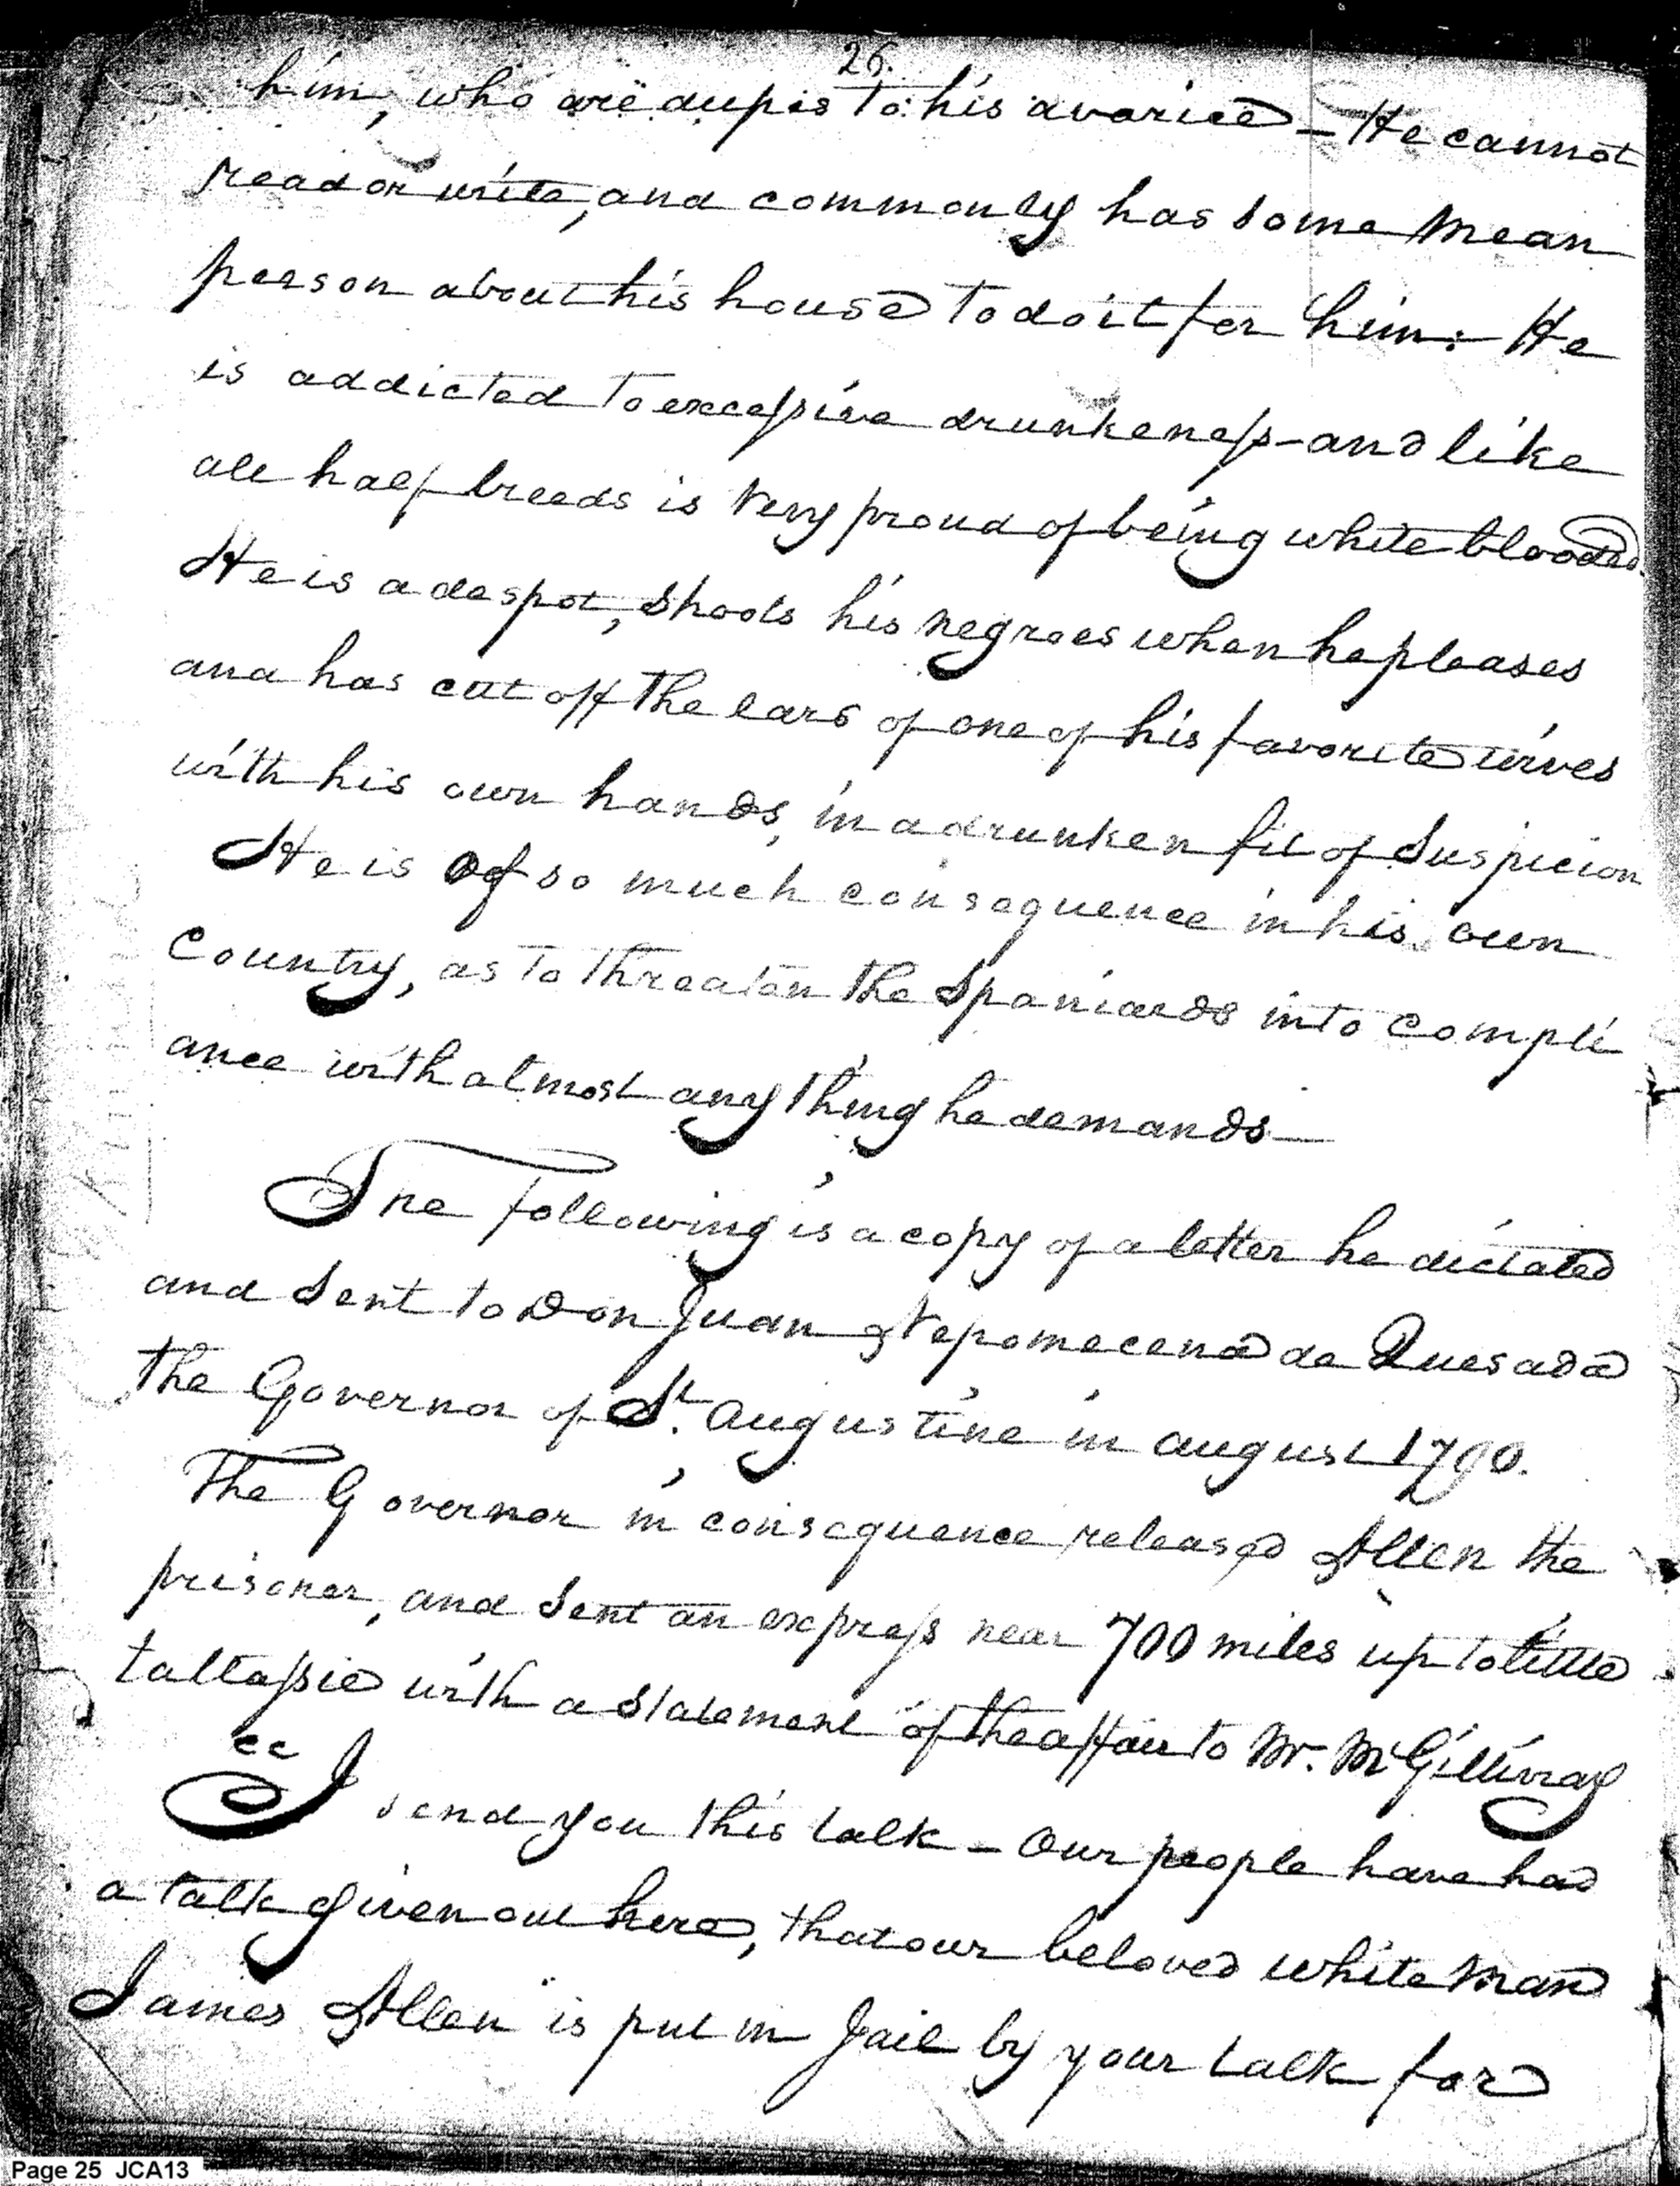 26.
him, who are dupes to his avarice – He cannot
read or write, and commonly has some mean
person about his house to do it for him: – He
is addicted to excessive drunkeness – and like
all half breeds is very proud of being white blooded.
He is a despot, shoots his negroes when he pleases
and has cut off the ears of one of his favorite wives
with his own hands, in a drunken fit of Suspicion
He is of so much consequence in his own
Country, as to threaten the Spaniards into compli
ance with almost any thing he demands –
The following is a copy of a letter he dictated
and sent to Don Juan Nepomecena de Quesada
the Governor of St. Augustine in august 1790.
The Governor in consequence released Allen the
prisoner, and sent an express near 700 miles up to little
tallassie with a statement of the affair to Mr. McGillivray
"I send you this talk – Our people have had
a talk given out here, that our beloved white man
James Allen is put in Jail by your talk for
Page 25 JCA13